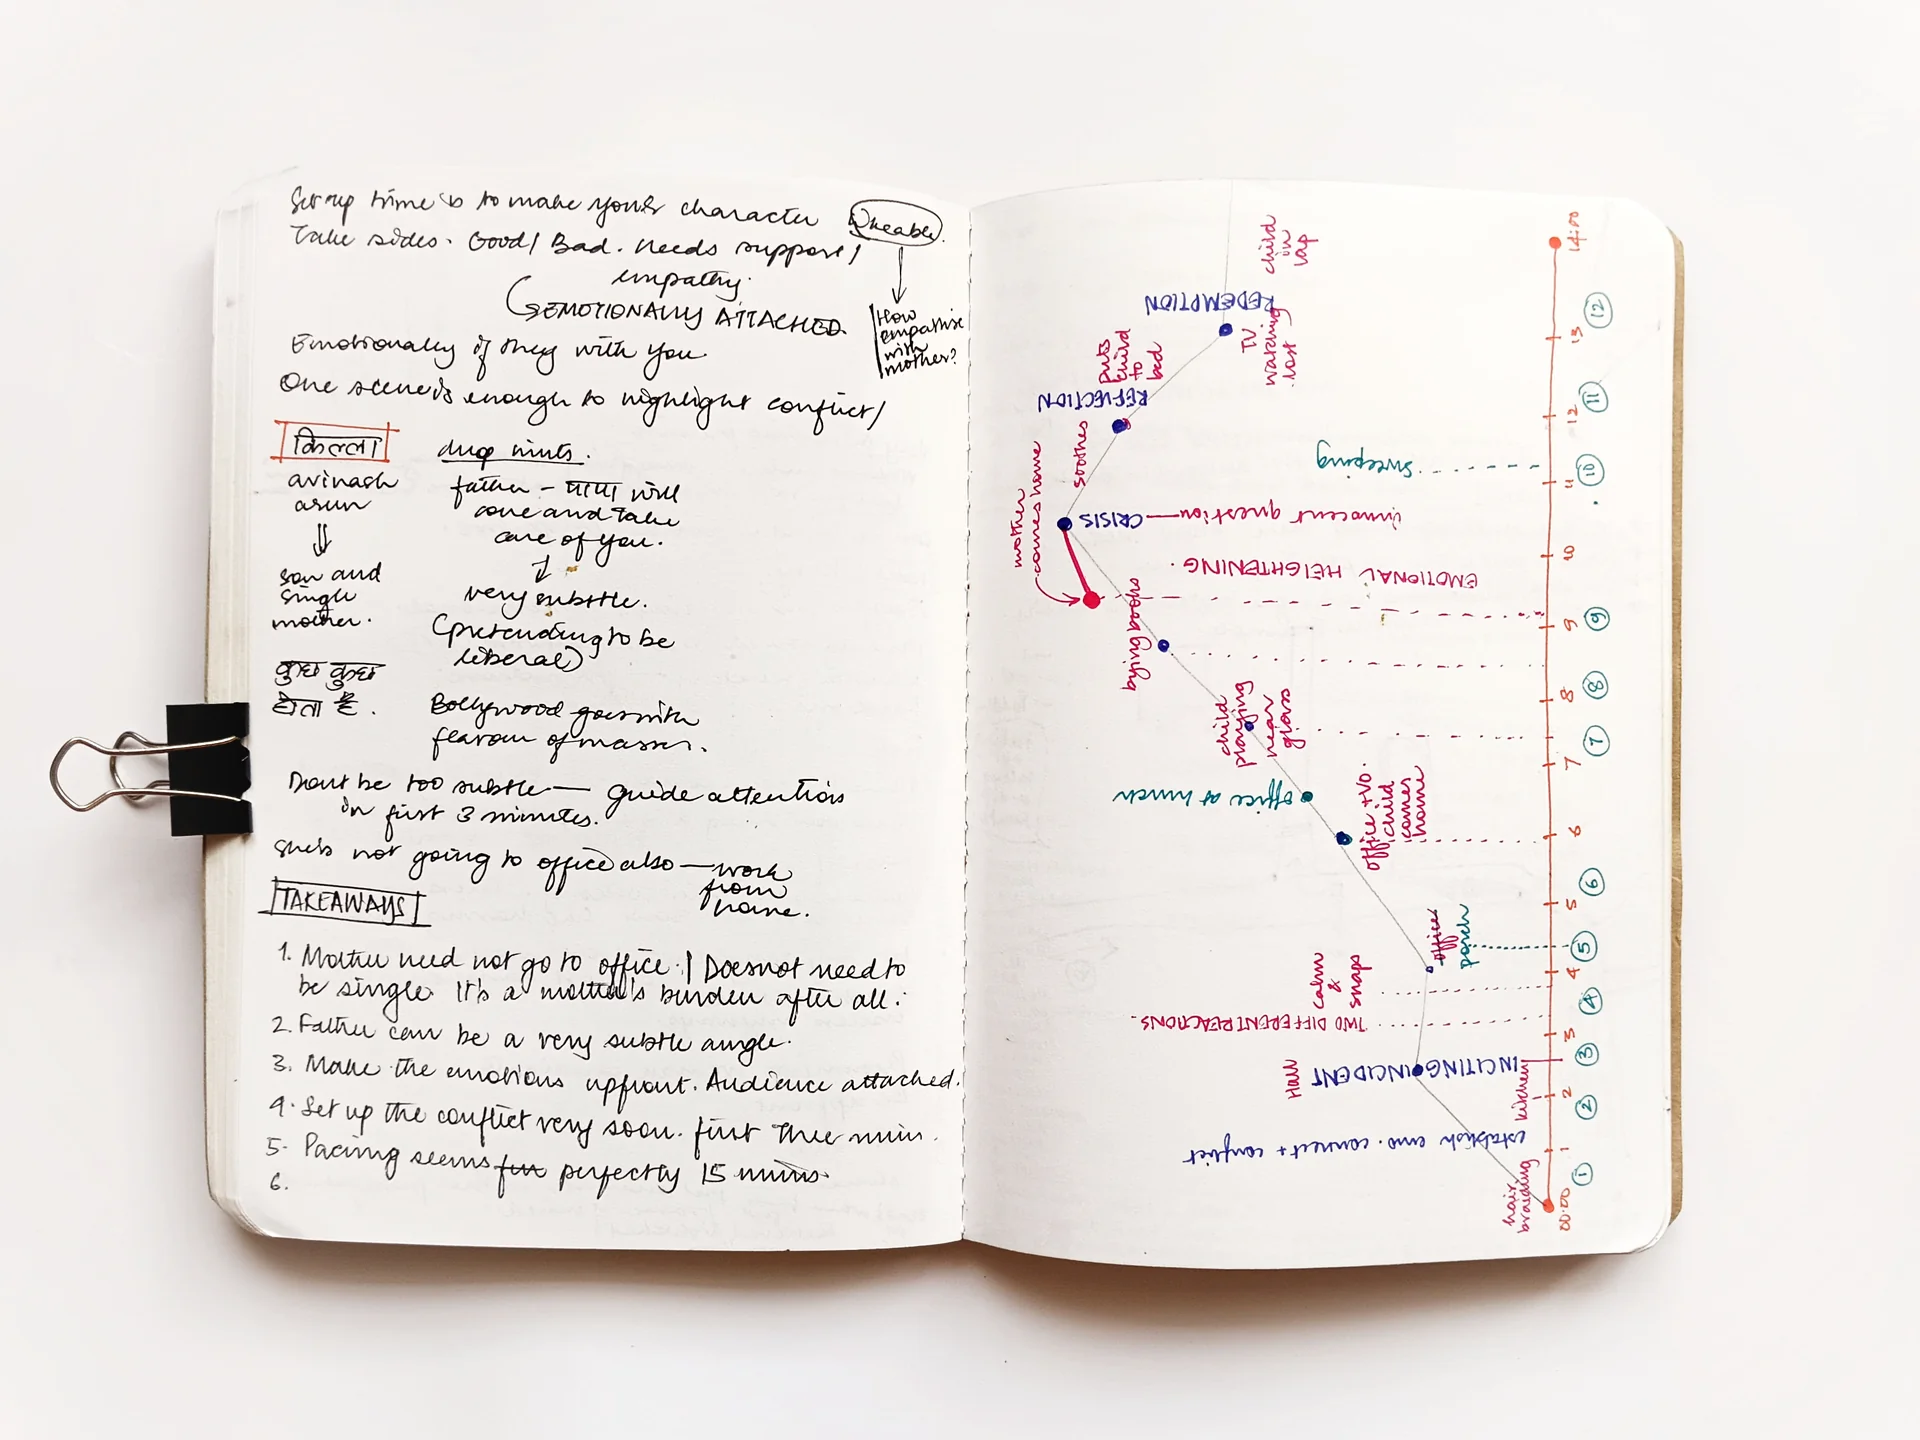 Set up time is to make your character likeable.
Take sides. Good/ Bad. Needs support/
empathy.
EMOTIONALLY ATTACHED.
How
empathise
with
mother?
Emotionally if they with you.
One scene is enough to highlight conflict/
किल्ला
avinash
arun
son and
single
mother.
कुछ कुछ
होता है.
drop hints.
father - पापा will
come and take
care of you.
very subtle.
(pretending to be
liberal)
Bollywood goes with
flavour of masses.
Dont be too subtle — guide attention
in first 3 minutes.
She's not going to office also — work
from
home.
TAKEAWAYS
1. Mother need not go to office. | Doesnot need to
be single. It's a mother's burden after all.
2. Father can be a very subtle angle.
3. Make the emotions upfront. Audience attached.
4. Set up the conflict very soon. first three min.
5. Pacing seems perfectly 15 mins.
6.
00:00
1
2
3
4
5
6
7
8
9
10
11
12
13
14:00
1
2
3
4
5
6
7
8
9
10
11
12
hair
braiding
establish emo. connect + conflict
kitchen
INCITING INCIDENT
Hall
TWO DIFFERENT REACTIONS.
Calm
&
snaps
office
porch
office + VO.
child
comes
home
office at lunch
child
playing
near
glass
bying books
mother
comes home
EMOTIONAL HEIGHTENING.
CRISIS — innocent question
sweeping
soothes
REFLECTION
puts
child
to
bed
REDEMPTION
TV
watching
last
child
on
lap